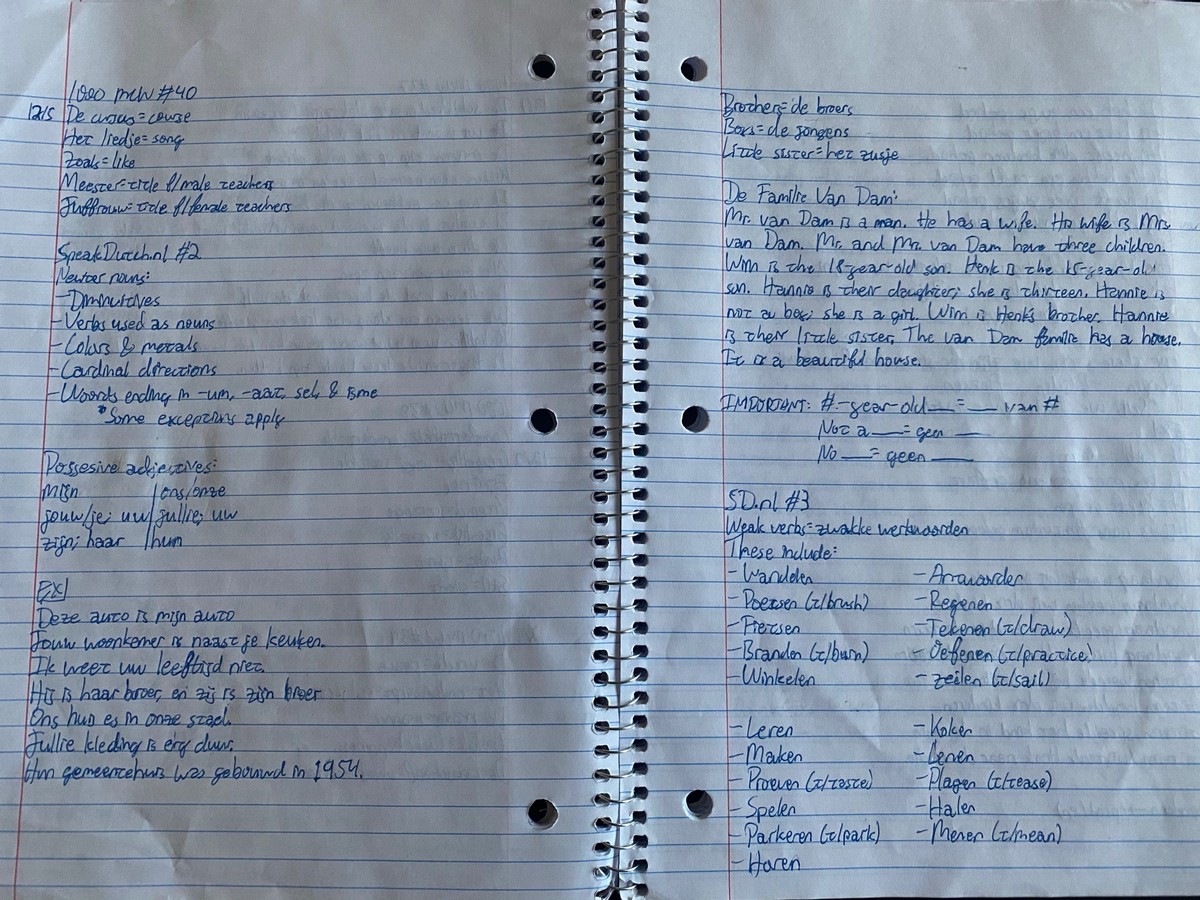 1000 mcw #40
12/5 De cursus = course
Het liedje = song
Zoals = like
Meester = title f/male teachers
Juffrouw = title f/female teachers
SpeakDutch.nl #2
Neuter nouns:
- Diminutives
- Verbs used as nouns
- Colors & metals
- Cardinal directions
- Woords ending in -um, -aat, sel, & isme
* Some exceptions apply
Possesive adjectives:
mijn | ons/onze
jouw/je; uw | jullie; uw
zijn; haar | hun
EX
Deze auto is mijn auto
Jouw woonkamer is naast je keuken.
Ik weet uw leeftijd niet.
Hij is haar broer, en zij is zijn broer
Ons huis is in onze stad.
Jullie kleding is erg duur.
Hun gemeentehuis was gebouwd in 1954.
Brothers = de broers
Boys = de jongens
Little sister = het zusje
De Familie Van Dam:
Mr. van Dam is a man. He has a wife. His wife is Mrs.
van Dam. Mr. and Mr. van Dam have three children.
Wim is the 18-year-old son. Henk is the 15-year-old
son. Hannie is their daughter; she is thirteen. Hannie is
not a boy; she is a girl. Wim is Henk's brother. Hannie
is their little sister. The van Dam familie has a house.
It is a beautiful house.
IMPORTANT: #-year-old __ = __ van #
Not a __ = geen __
No __ = geen __
SD.nl #3
Weak verbs = zwakke werkwoorden
These include:
- Wandelen - Antwoorden
- Poetsen (t/brush) - Regenen
- Fietsen - Tekenen (t/draw)
- Branden (t/burn) - Oefenen (t/practice)
- Winkelen - Zeilen (t/sail)
- Leren - Koken
- Maken - Lenen
- Proeven (t/taste) - Plagen (t/tease)
- Spelen - Halen
- Parkeren (t/park) - Menen (t/mean)
- Haten